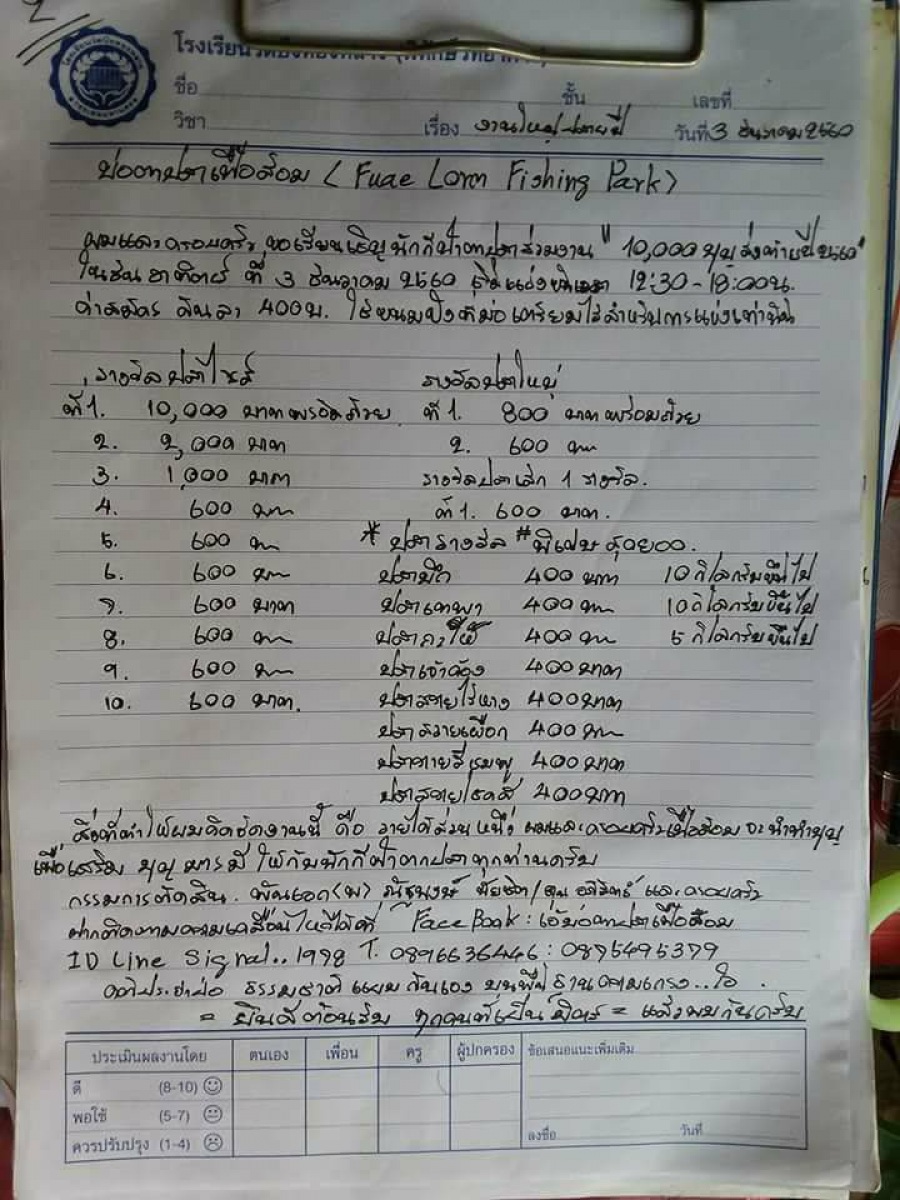 2
โรงเรียนวัดบึงทองหลาง
ชื่อ ชั้น เลขที่
วิชา เรื่อง งานใหญ่ปลายปี วันที่ 3 ธันวาคม 2560
บ่อตกปลาเพื่อล้อม (Fuae Lorm Fishing Park)
ผมและครอบครัว ขอเรียนเชิญนักกีฬาตกปลาร่วมงาน " 10,000 บุญส่งท้ายปี 2560"
ในวันอาทิตย์ ที่ 3 ธันวาคม 2560 เวลา 12:30-18:00น.
ค่าสมัคร คันละ 400บ. ใช้ขนมปังที่บ่อเตรียมไว้สำหรับการแข่งเท่านั้น
รางวัลปลาไซส์ รางวัลปลาใหญ่
ที่ 1. 10,000 บาทพร้อมถ้วย ที่ 1. 800 บาทพร้อมถ้วย
2. 2,000 บาท 2. 600 บาท
3. 1,000 บาท รางวัลปลาเล็ก 1 รางวัล.
4. 600 บาท ที่ 1. 600 บาท.
5. 600 บาท * ปลารางวัล # พิเศษ
6. 600 บาท ปลาบึก 400 บาท 10 กิโลกรัมขึ้นไป
7. 600 บาท ปลาเทพา 400 บาท 10 กิโลกรัมขึ้นไป
8. 600 บาท ปลากะโห้ 400 บาท 5 กิโลกรัมขึ้นไป
9. 600 บาท 400 บาท
10. 600 บาท. ปลาสวายไร้หาง 400 บาท
ปลาสวายเผือก 400 บาท
400 บาท
400 บาท
สิ่งที่ทำให้ผมคิดจัดงานนี้ คือ รายได้ส่วนหนึ่ง ผมและครอบครัวเพื่อล้อม จะนำทำบุญ
เพื่อเสริม บุญ บารมี ให้กับนักกีฬาตกปลาทุกท่านครับ
กรรมการตัดสิน. และครอบครัว
ฝากติดตามความเคลื่อนไหวได้ที่ Face Book : บ่อตกปลาเพื่อล้อม
ID Line Signal..1998 T. 0896636446 : 0895495379
คติประจำบ่อ ธรรมชาติ บนพื้นฐานความเกรง..ใจ.
= ยินดีต้อนรับ ทุกคนที่เป็นมิตร = แล้วพบกันครับ
ประเมินผลงานโดย ตนเอง เพื่อน ครู ผู้ปกครอง ข้อเสนอแนะเพิ่มเติม
ดี (8-10)
พอใช้ (5-7)
ควรปรับปรุง (1-4) ลงชื่อ วันที่